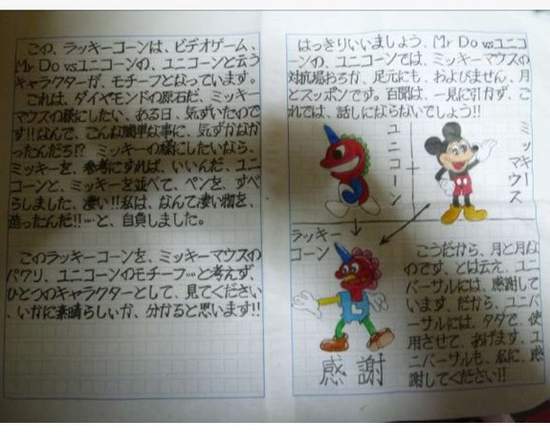 この、ラッキーコーンは、ビデオゲーム、
Mr Do vsユニコーンの、ユニコーンと云う
キャラクターが、モチーフとなっています。
これは、ダイヤモンドの原石だ、ミッキー
マウスの様にしたい、ある日、気ずいたので
す!!なんで、こんな簡単な事に、気ずかなか
ったんだろ!?ミッキーの様にしたいなら、
ミッキーを、参考にすれば、いいんだ、ユニ
コーンと、ミッキーを並べて、ペンを、すべ
らしました、凄い!!私は、なんて凄い物を、
造ったんだ!!…と、自負しました。
このラッキーコーンを、ミッキーマウスの
パクリ、ユニコーンのモチーフ…と考えず、
ひとつのキャラクターとして、見てください
、いかに素晴らしいか、分かると思います!!
はっきりいいましょう、Mr Do vsユニコ
ーンの、ユニコーンでは、ミッキーマウスの
対抗場おろか、足元にも、およびません、月
とスッポンです。百聞は、一見に引かず、こ
れでは、話しにならないでしょう!!
ユニコーン
ミッキーマウス
ラッキー
コーン
こうだから、月と月な
のです、とは云え、ユニ
バーサルには、感謝して
います、だから、ユニバ
ーサルには、タダで、使
用させて、あげます、ユ
ニバーサルも、私に、感
謝してください!!
L
感謝